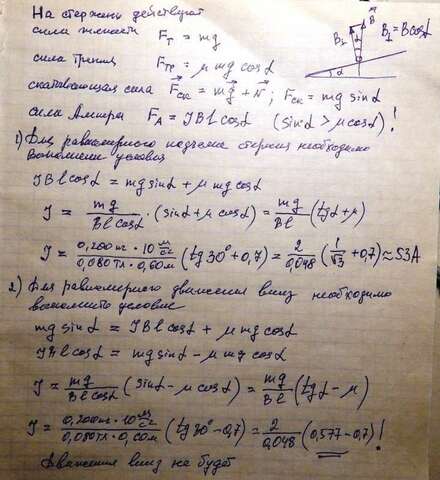 На стержень действуют
сила тяжести Fт = mg
сила трения Fтр = μ mg cosα
скатывающая сила Fск = mg + N ; Fск = mg sinα
сила Ампера FA = IBl cosα (sinα > μcosα) !
B B⊥ = B cosα
B⊥ α
α
1) Для равномерного подъема стержня необходимо
выполнение условия
IBl cosα = mg sinα + μ mg cosα
I = mg / Bl cosα · (sinα + μ cosα) = mg / Bl (tgα + μ)
I = 0,200кг · 10 м/с² / 0,080Тл · 0,60м (tg 30° + 0,7) = 2 / 0,048 (1/√3 + 0,7) ≈ 53A
2) Для равномерного движения вниз необходимо
выполнить условие
mg sinα = IBl cosα + μ mg cosα
IBl cosα = mg sinα − μ mg cosα
I = mg / Bl cosα (sinα − μ cosα) = mg / Bl (tgα − μ)
I = 0,200кг · 10 м/с² / 0,080Тл · 0,60м (tg 30° − 0,7) = 2 / 0,048 (0,577 − 0,7) !
Движения вниз не будет